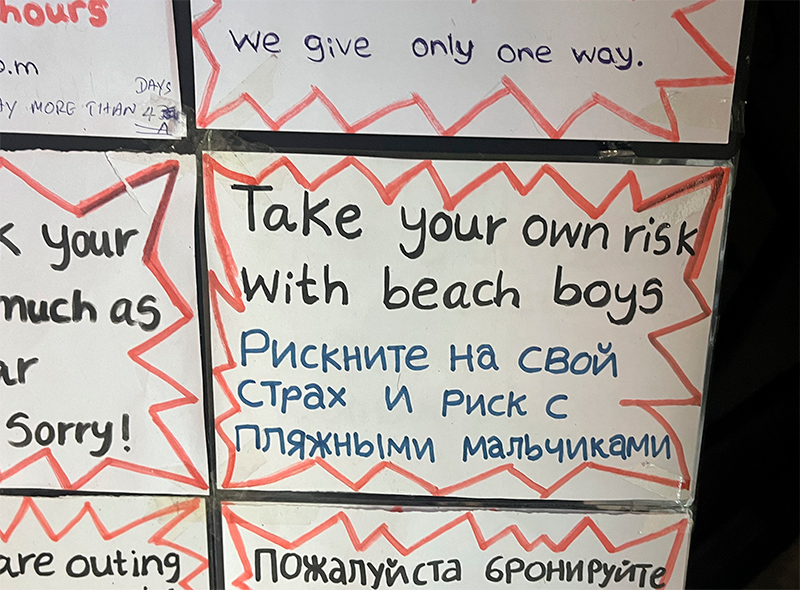 hours
p.m
DAYS
MORE THAN 4
we give only one way.
k your
much as
ar
Sorry!
Take your own risk
with beach boys
Рискните на свой
страх и риск с
пляжными мальчиками
are outing
Пожалуйста бронируйте